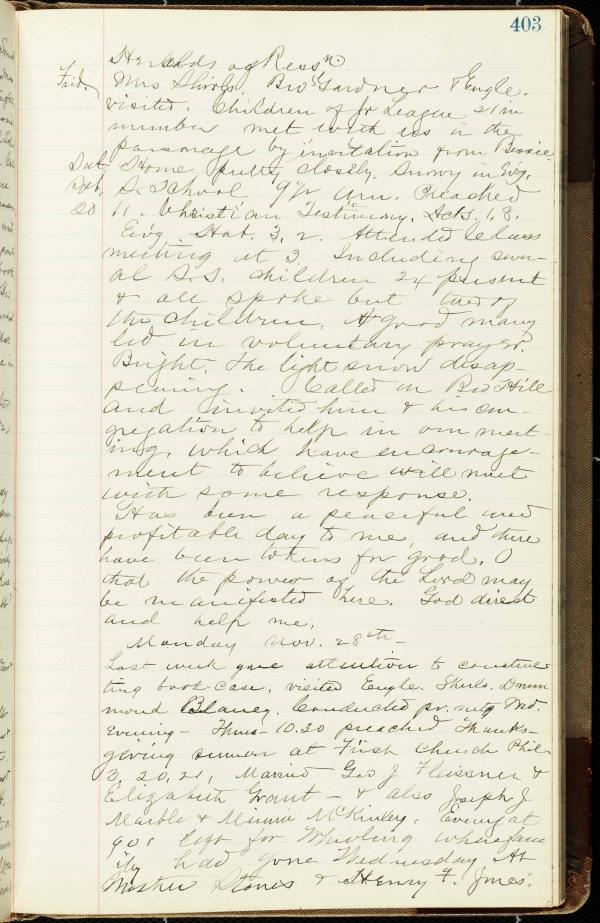 403
Heralds of Ressn.
Frid. Mrs Shirls, Bro's Gardner & Engle.
visited. Children of Jr League 21 in
number met with us in the
parsonage by invitation from Bessie
Sat. Home pretty closely. Snowy in Ev'g.
Sab. S. School 9 1/2 A.M. Preached
20 11. Christian Testimony. Acts. 1,8.
Ev'g Hab. 3, 2. Attended Class
meeting at 3 Including sever-
al S.S. children 24 present
& all spoke but two of
the children. A good many
led in voluntary prayer.
Bright, the light snow disap-
pearing. Called on Bro Hill
and invited him & his con-
gregation to help in our meet-
ing, which have encourage-
ment to believe will meet
with some response.
Has been a peaceful and
profitable day to me, and there
have been tokens for good. O
that the power of the Lord may
be manifested here. God direct
and help me.
Monday Nov. 28th-
Last week gave attention to construc-
ting book-case, visited Engle. Shirls. Drum
mond Blaney. Conducted pr. mtg Wed.
Evening- Thurs- 10.30 preached Thanks-
giving sermon at Frish Church Phil.
3, 20,21, Married Geo J Fleissner &
Elizabeth Grant - & also Joseph J
Marble & Minnie McKinley. Evening at
901 left for Wheeling where fam
ily had gone Wednesday At
Mother Stones & Henry F. Jones'.